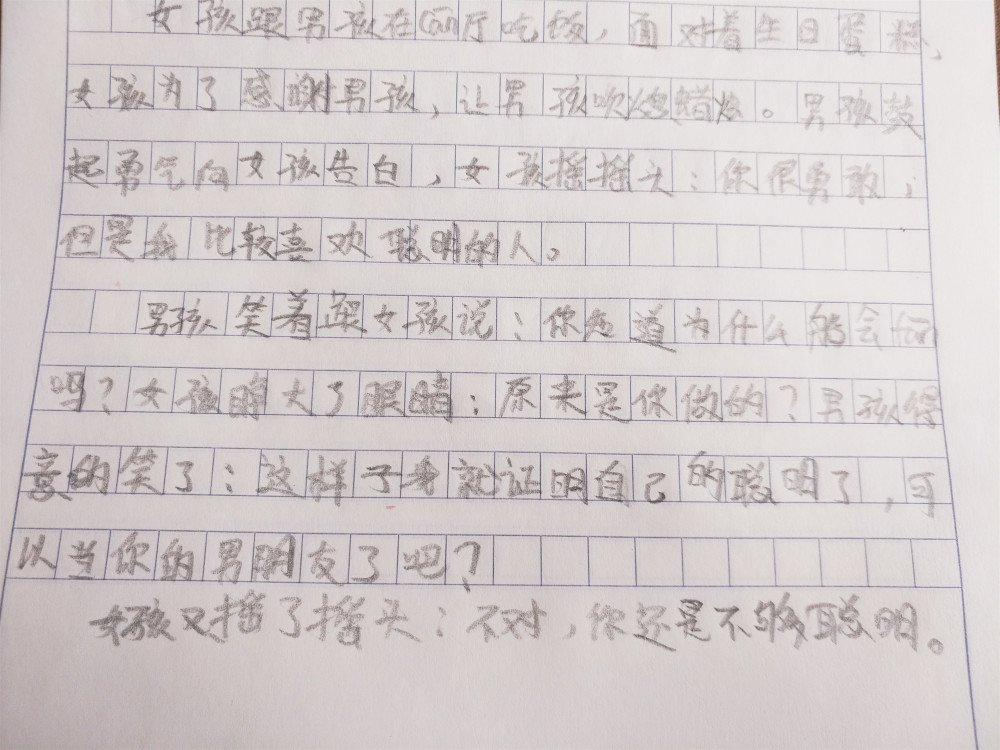 女孩跟男孩在can厅吃饭，面对着生日蛋糕，
女孩为了感谢男孩，让男孩吹熄蜡烛。男孩鼓
起勇气向女孩告白，女孩摇摇头：你很勇敢；
但是我比较喜欢聪明的人。
男孩笑着跟女孩说：你知道为什么船会fan
吗？女孩睁大了眼睛：原来是你做的？男孩得
意的笑了：这样子我就证明自己的聪明了，可
以当你的男朋友了吧？
女孩又摇了摇头：不对，你还是不够聪明。